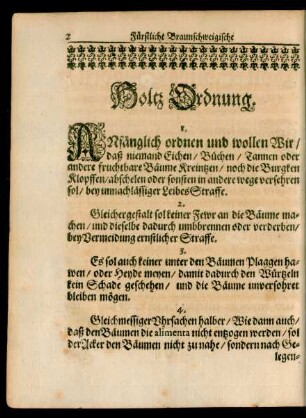 2 Fürstliche Braunschweigische
Holtz Ordnung.
1.
ANfänglich ordnen und wollen Wir/
daß niemand Eichen/ Büchen/ Tannen oder
andere fruchtbare Bäume Kreintzen/ noch die Burgken
Klopffen/ abschelen oder sonsten in andere wege versehren
sol/ bey unnachlässiger Leibes Straffe.
2.
Gleichergestalt sol keiner Fewr an die Bäume ma-
chen/ und dieselbe dadurch umbbrennen oder verderben/
bey Vermeidung ernstlicher Straffe.
3.
Es sol auch keiner unter den Bäumen Plaggen ha-
wen/ oder Heyde meyen/ damit dadurch den Würtzeln
kein Schade geschehen/ und die Bäume unversohret
bleiben mögen.
4.
Gleichmessiger Vhrsachen halber/ Wie dann auch/
daß den Bäumen die alimenta nicht entzogen werden/ sol
der Acker den Bäumen nicht zu nahe/ sondern nach Ge-
legen-